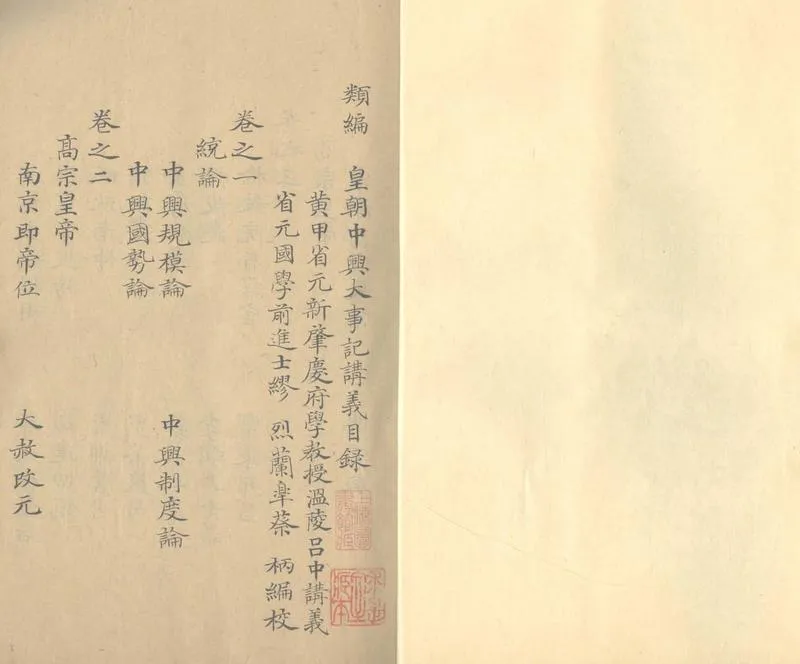 類編　皇朝中興大事記講義目錄
黃甲省元新肇慶府學教授溫陵呂中講義
省元國學前進士繆　烈蘭皐蔡　柄編校
卷之一
統論
中興規模論　中興制度論
中興國勢論
卷之二
高宗皇帝
南京即帝位　大赦改元